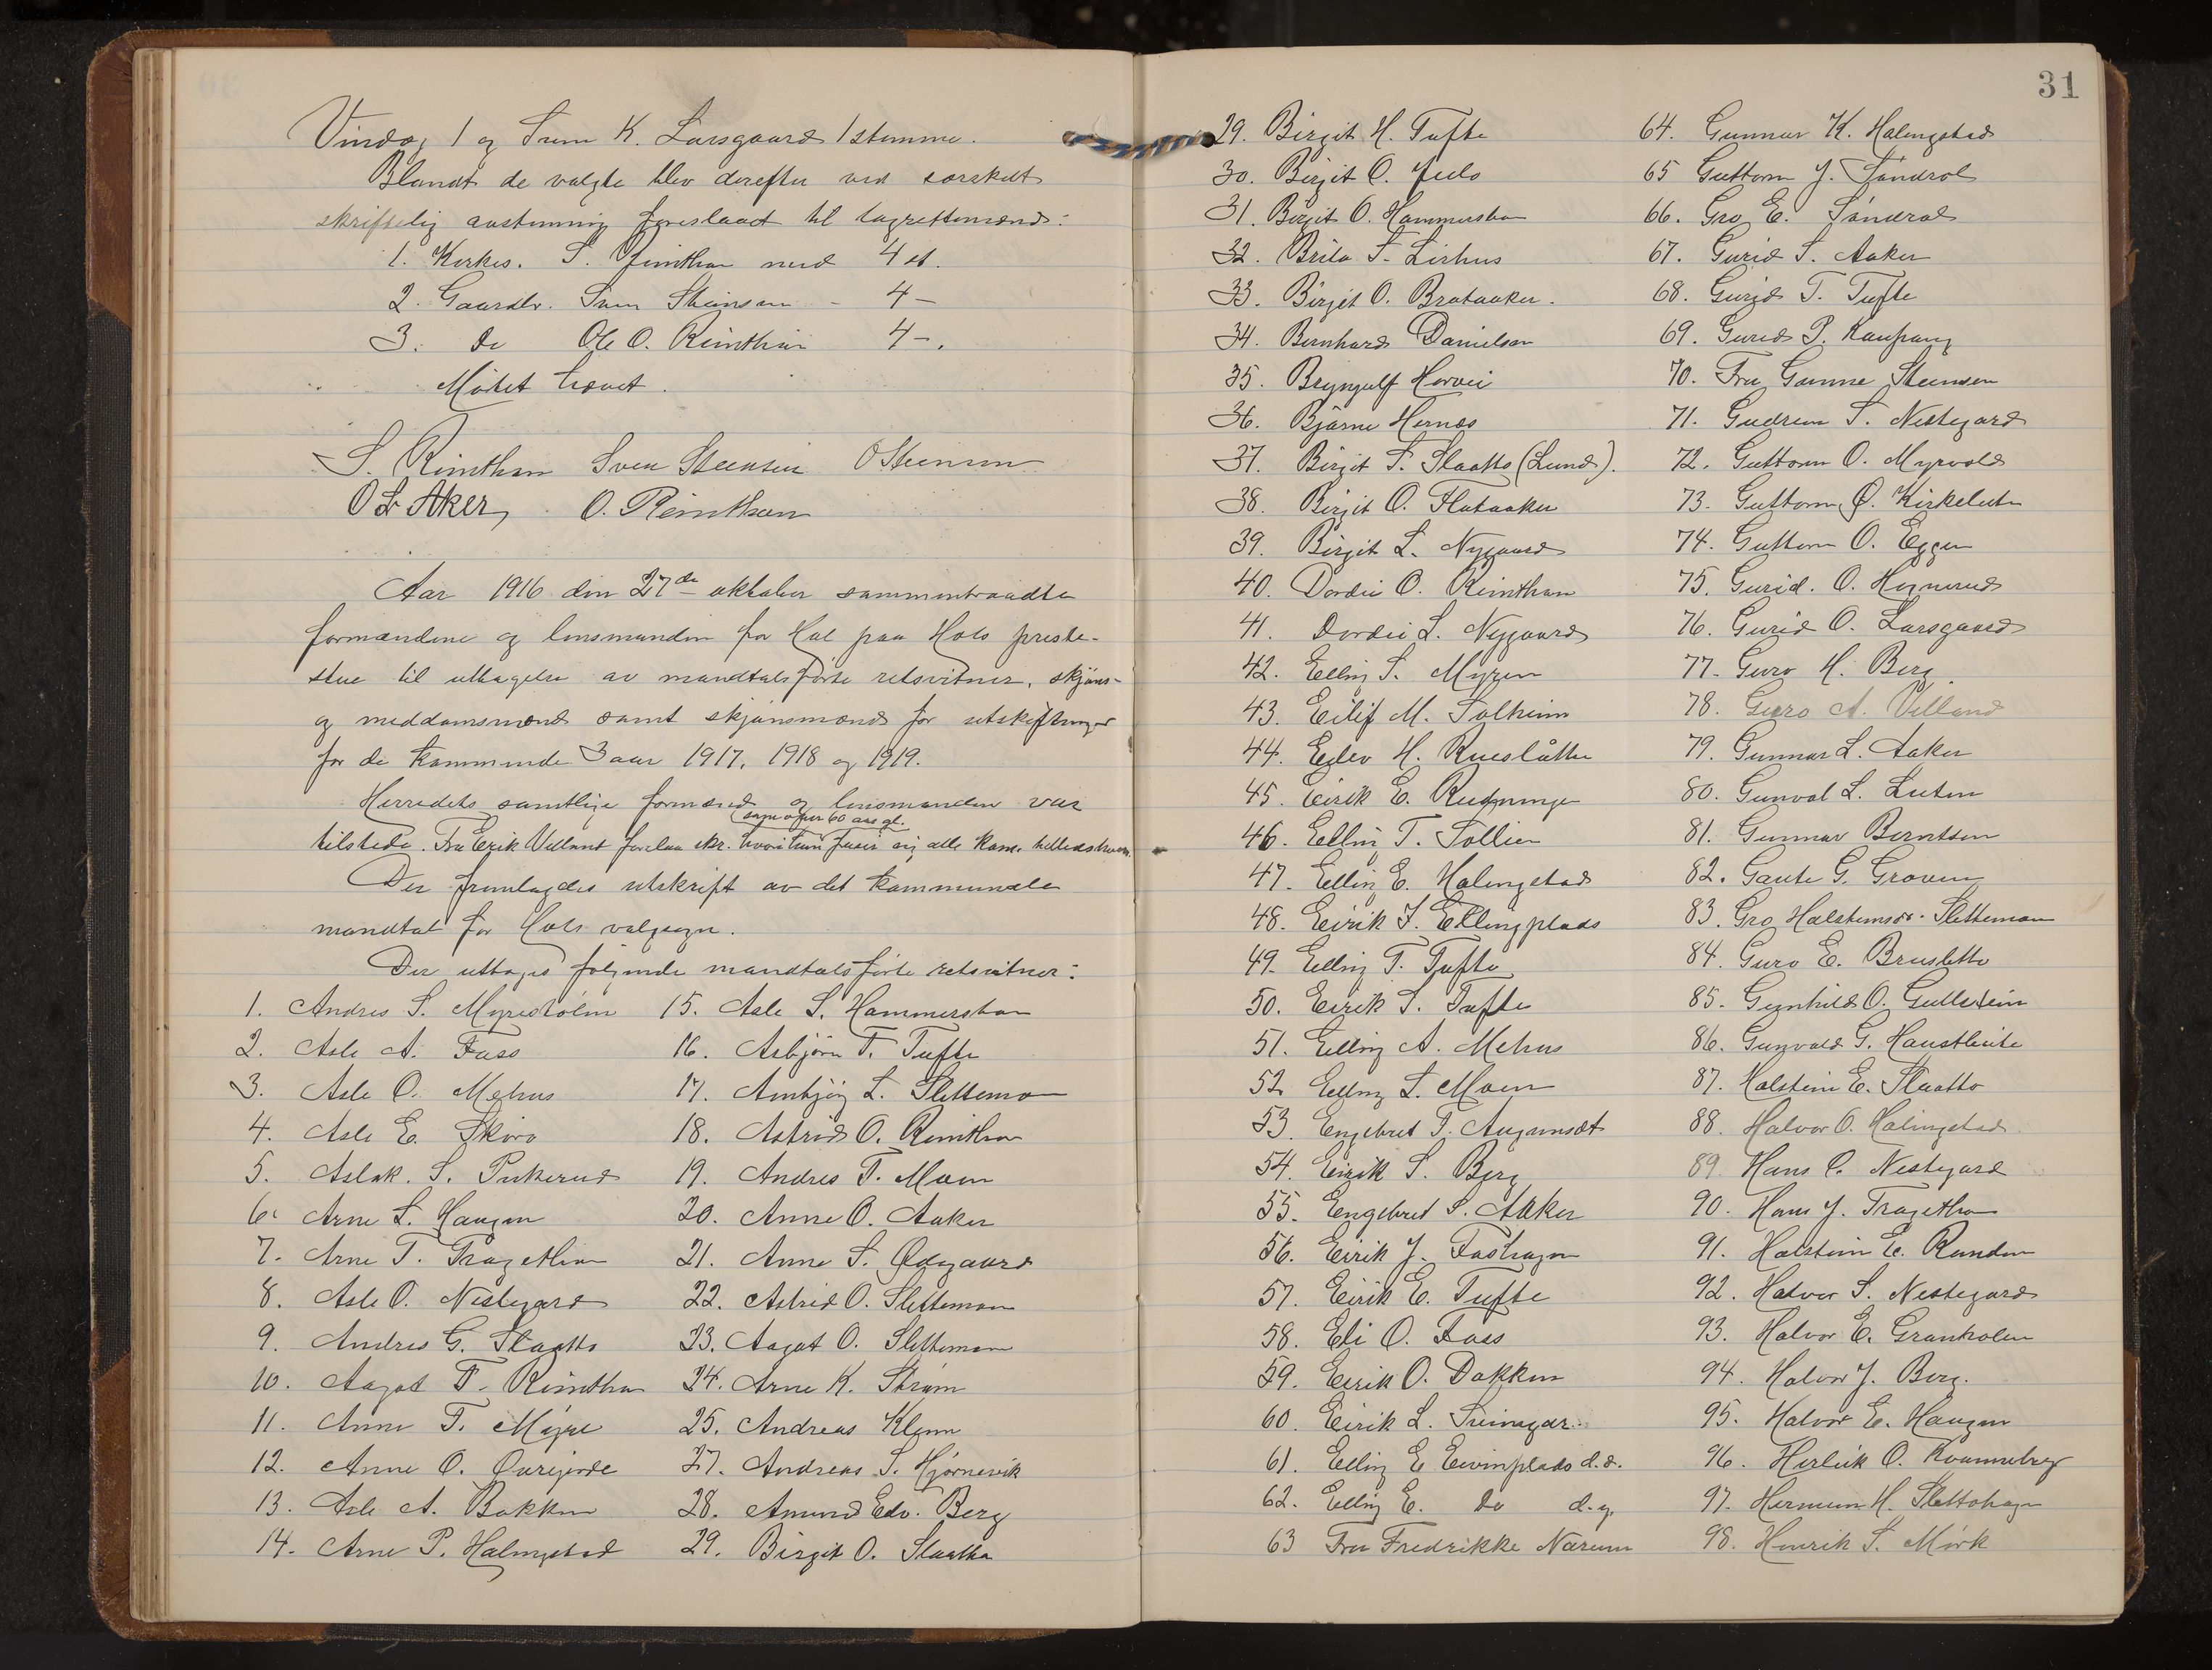 Vindøg 1 og Sven K. Larsgaard 1 stemme.
Blandt de valgte blev derefter ved særskilt
skriftelig avstemning foreslaaet til lagrettemænd:
1. Kirkes. S. Reinthon med 4 st.
2. Gaardbr. Sven Steinsen - 4 -
3. Do Ole O. Reinthon 4 -.
Mötet hævet.
S. Rinthon Sven Steensen O Steensen
O L Aker, O. Reinthon
Aar 1916 den 27de oktober sammentraadte
formændene og lensmanden for Hol paa Hols preste-
stue til uttagelse av mandtalsförte retsvitner, skjöns-
og meddomsmænd samt skjönsmænd for utskiftninger
for de kommende 3 aar 1917, 1918 og 1919.
Herredets samtlige formænd og lensmanden var
(som er over 60 aar gl.
tilstede. Fra Erik Villand forelaa skr. hvori han frasir sig alle kom. tillidshverv.
Der fremlagdes utskrift av det kommunale
mandtal for Hols valgsogn.
Der uttoges fölgende mandtalsförte retsvitner:
1. Andres S. Myrestölen
2. Asle A. Foss
3. Asle O. Mehus
4. Asle E. Skoro
5. Aslak. S. Pukerud
6. Arne L. Haugen
7. Arne T. Tragethon
8. Asle O. Nestegard
9. Andres G. Slaatto
10. Aagot T. Rinthon
11. Anne T. Myre
12. Anne O. Övrejorde
13. Asle A. Bakken
14. Arne P. Halingstad
15. Asle S. Hammersbøn
16. Asbjörn T. Tufte
17. Ambjög L. Slettemo
18. Astrid O. Rinthon
19. Andres T. Moen
20. Anne O. Aaker
21. Anne S. Ødegaard
22. Astrid O. Slettemoen
23. Aagot O. Slettemoen
24. Arne K. Ström
25. Andreas Klenn
27. Andreas S. Hjørnevik
28. Amund Edv. Berg
29. Birgit O. Slaatto
31
29. Birgit H. Tufte
30. Birgit O. Juls
31. Birgit O. Hammersbøn
32. Brita T. Lirhus
33. Birgit O. Brataaker.
34. Bernhard Danielsen
35. Bryngulf Horvei
36. Bjarne Hernes
37. Birgit T. Slaatto (Lund).
38. Birgit O. Flataaker
39. Birgit L. Nygaard
40. Dordei O. Rinthon
41. Dordei L. Nygaard
42. Elling S. Myren
43. Eilif M. Solheim
44. Eglev H. Rueslåtten
45. Eirik E. Rudninge
46. Elling T. Sollien
47. Elling E. Halingstad
48. Eirik J. Ellingplads
49. Elling T. Tufte
50. Eirik S. Tufte
51. Elling A. Mehus
52 Elling L. Moen
53. Engebret T. Augunset
54. Eirik S. Berg
55. Engebret S. Aaker
56. Eirik J. Fosshagen
57. Eirik E. Tufte
58. Eli O. Foss
59. Eirik O. Dokken
60. Eirik L. Sveingar
61. Elling E Eivinplads d.e.
62. Elling E. do d.y.
63 Fru Fredrikke Nærum
64. Gunnar K. Halingstad
65 Guttorm J. Söndrol
66. Gro E. Söndrol
67. Gurid S. Aaker
68. Gurid T. Tufte
69. Gurid P. Kaupang
70. Fru Gunne Steensen
71. Gudrun S. Nestegard
72. Guttorm O. Myrvold
73. Guttorm O. Kirkeluten
74. Guttorm O. Eggen
75. Gurid. O. Hognerud
76. Gurid O. Larsgaard
77. Guro H. Berg
78. Guro A. Villand
79. Gunnar L. Aaker
80. Gunval L. Luten
81. Gunnar Berntsen
82. Gaute G. Groven
83. Gro Halstensdr. Slettemoen
84. Guro E. Brusletto
85. Gunhild O. Gullstein
86. Gunvald G. Haustlieite
87. Halstein E. Slaatto
88. Halvor O. Halingstad
89. Hans O. Nestegard
90. Hans J. Tragethon
91. Halstein E. Runden
92. Halvor S. Nestegard
93. Halvor E. Grønholen
94. Halvor J. Berg.
95. Halvor E. Haugen
96. Herleik O. Kvanneberg
97. Herman H. Slettohagen
98. Henrik S. Mörk